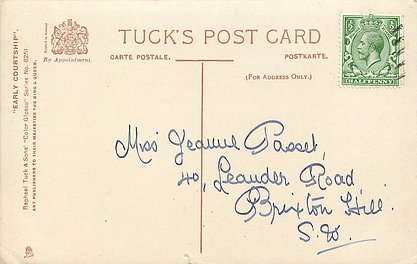 TUCK'S POST CARD
CARTE POSTALE.
POSTKARTE.
(FOR ADDRESS ONLY.)
By Appointment.
"EARLY COURTSHIP".
Raphael Tuck & Sons' "Color Glosso" Series No. 8251
ART PUBLISHERS TO THEIR MAJESTIES THE KING & QUEEN.
HALFPENNY
Miss Jeanne Passet,
40, Leander Road
Brixton Hill.
S.W.